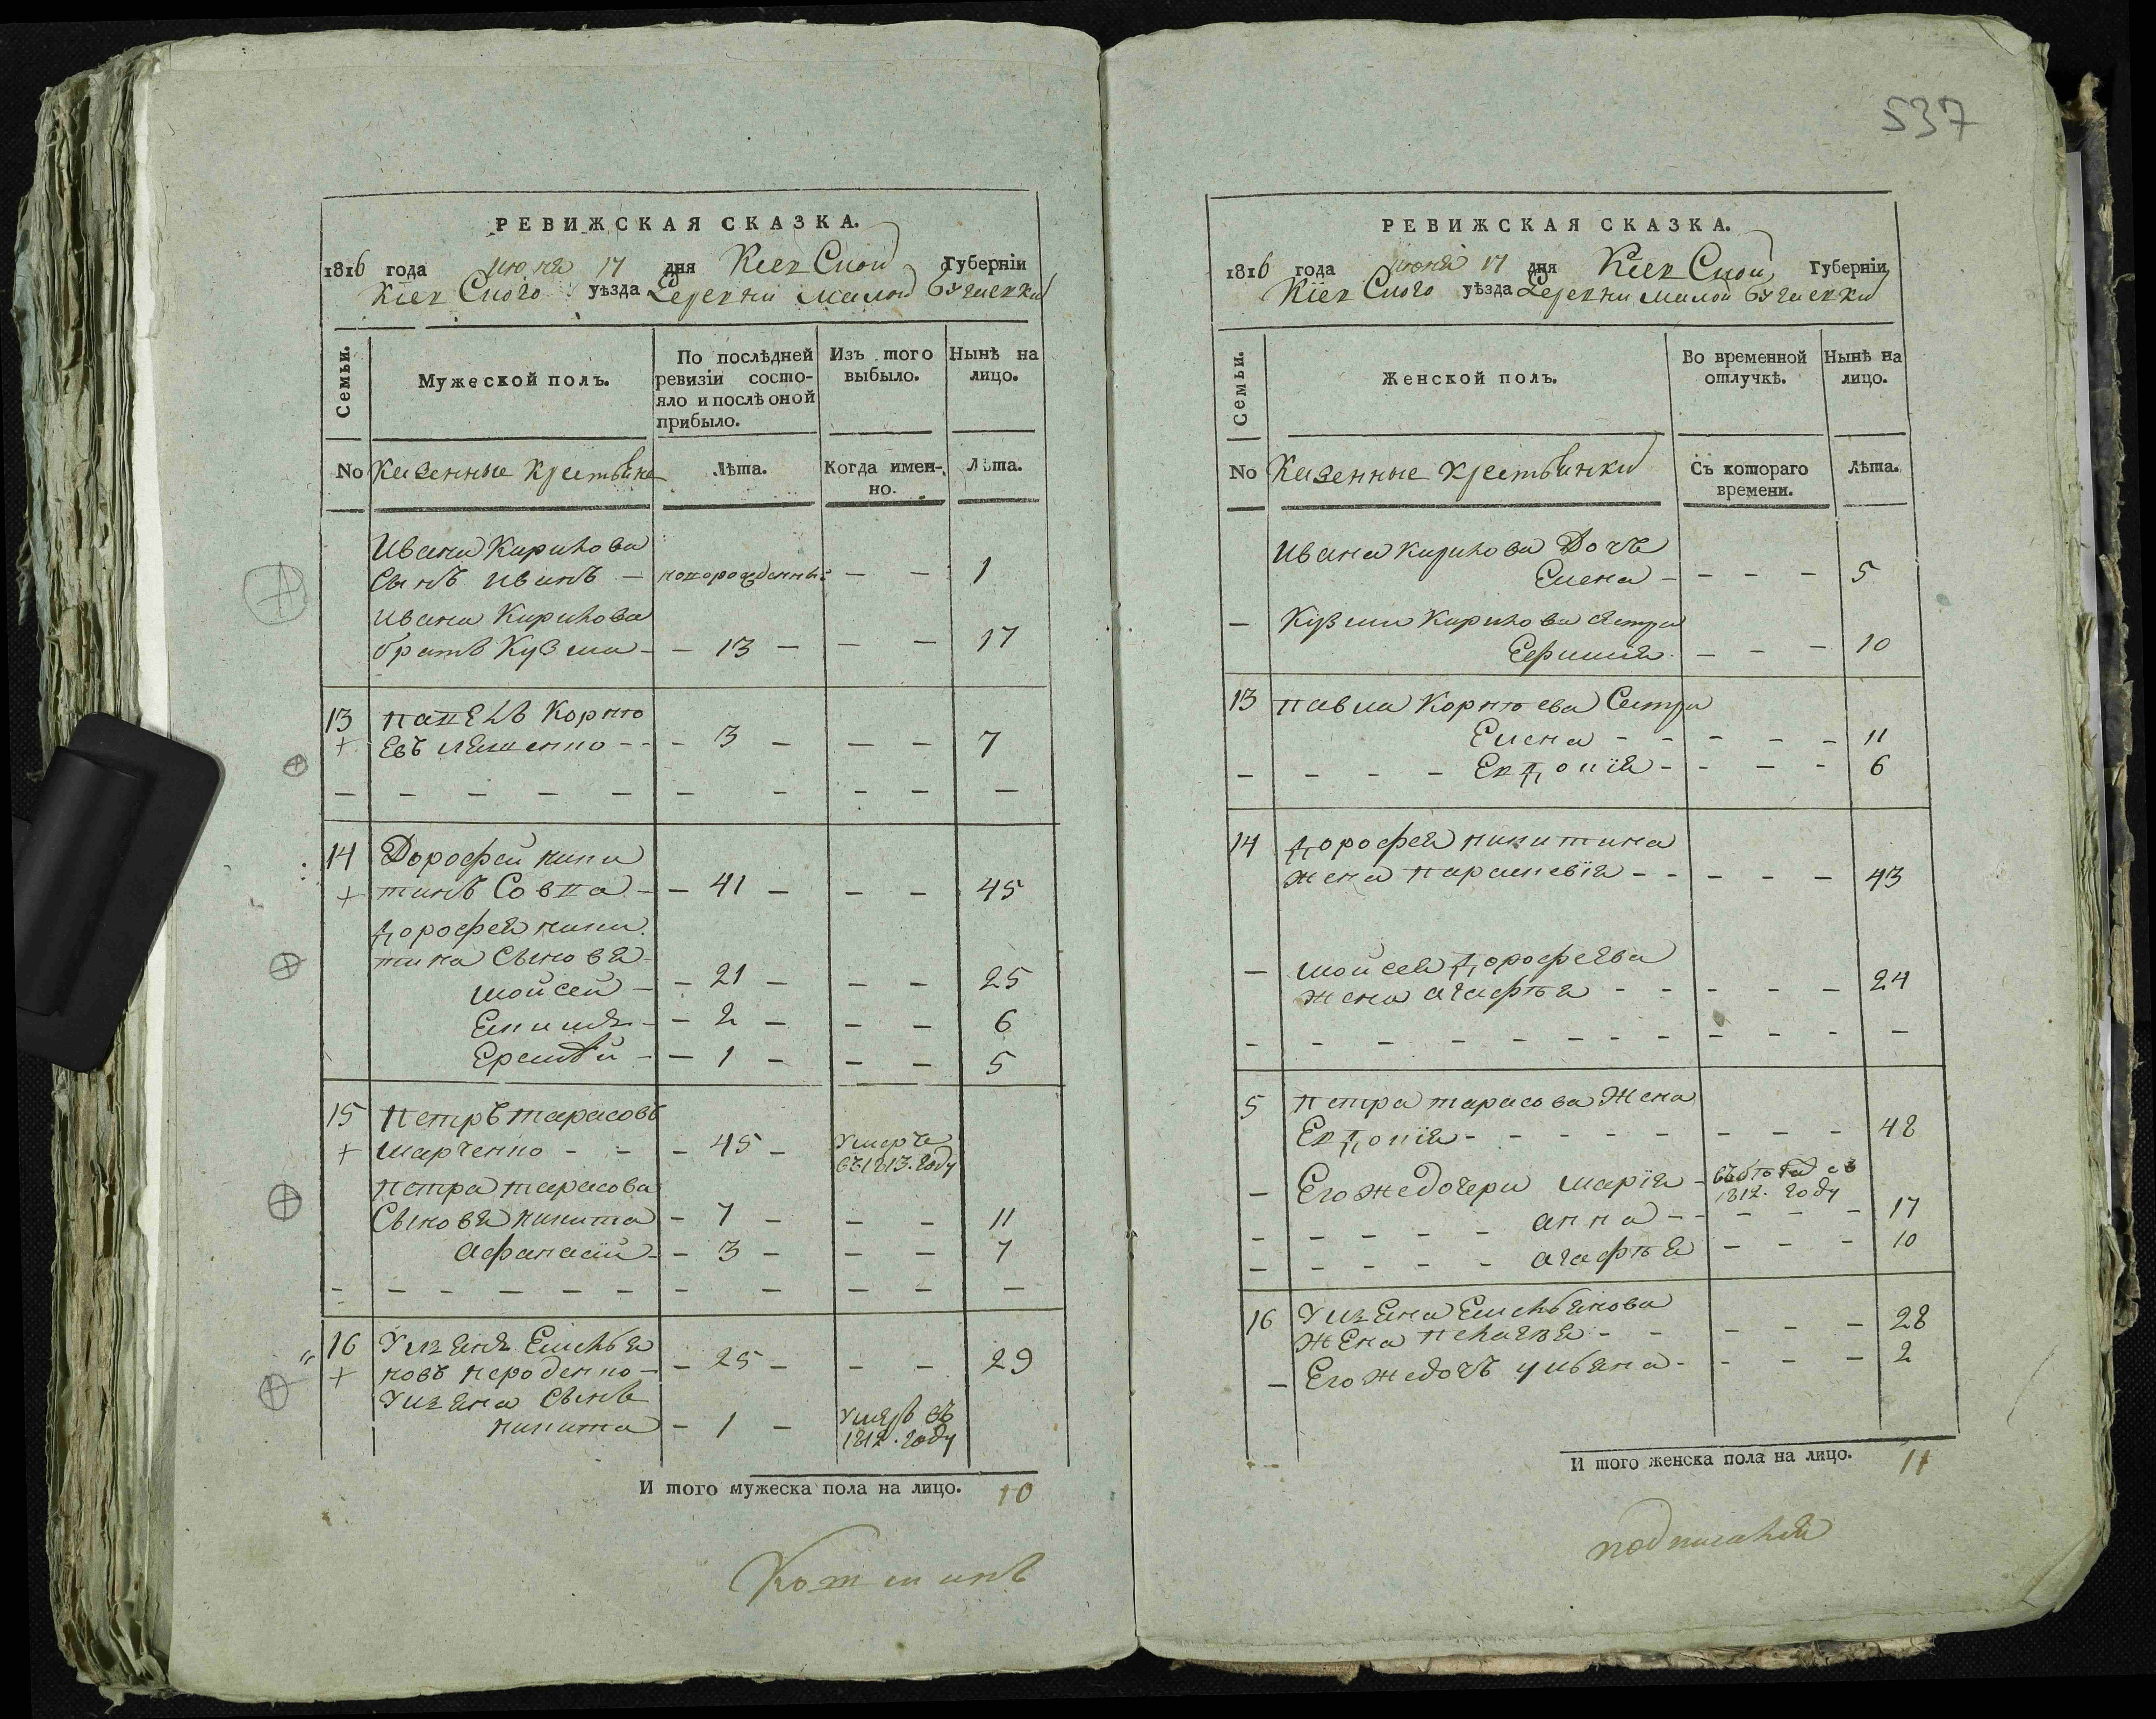 РЕВИЖСКАЯ СКАЗКА.
1816 года июня 17 дня Кіевской Губерніи
Кіевского уѣзда Деревни малой бугаевки
Семьи.
Мужеской полъ.
По послѣдней ревизіи состо-
яло и послѣ оной
прибыло.
Изъ того
выбыло.
Нынѣ на
лицо.
No Казенные крестьяне
Лѣта.
Когда имен-
но.
Лѣта.
Ивана Кирилова
Сынъ иванъ – новорожденный – – 1
ивана Кирилова
братъ Кузма – – 13 – – – 17
13 павелъ Корнѣ
евъ – – 3 – – – 7
14 Дорофей ники
тинъ Совпа – – 41 – – – 45
дорофея ники
тина Сыновя
мойсей – – 21 – – – 25
Екимъ – – 2 – – – 6
Еремѣй – – 1 – – – 5
15 петръ тарасовъ
марченко – – – 45 – умеръ
въ 1813. году
петра тарасова
Сыновя никита – 7 – – – 11
Афанасій – – 3 – – – 7
16 Ульянъ Емельян
новъ нероденко – – 25 – – – 29
Ульяна Сынъ
никита – 1 – умеръ въ
1812. году
И того мужеска пола на лицо. 10
537
РЕВИЖСКАЯ СКАЗКА.
1816 года июня 17 дня Кіевской Губерніи
Кіевского уѣзда Деревни малой бугаевки
Семьи.
Женской полъ.
Во временной
отлучкѣ.
Нынѣ на
лицо.
No Казенные крестьянки
Съ котораго
времени.
Лѣта.
Ивана кирилова Дочь
Елена – – – – 5
– Кузми Кирилова сестра
Ефимия – – – 10
13 павла Корнѣева Сестра
Елена – – – – – 11
– – – – Евдокія – – – – 6
14 дорофея никитина
жена параскевія – – – – – 43
– мойсея дорофеява
жена агафія – – – – – 24
5 петра тарасова Жена
Евдокія – – – – – – – – – 48
– Его же дочери марія –
1812. году
– – – – – анна – – – – – 17
– – – – – агафія – – – 10
16 Ульяна Емельянова
жена пелагея – – – – – 28
– Его же дочъ ульяна – – – – 2
И того женска пола на лицо. 11